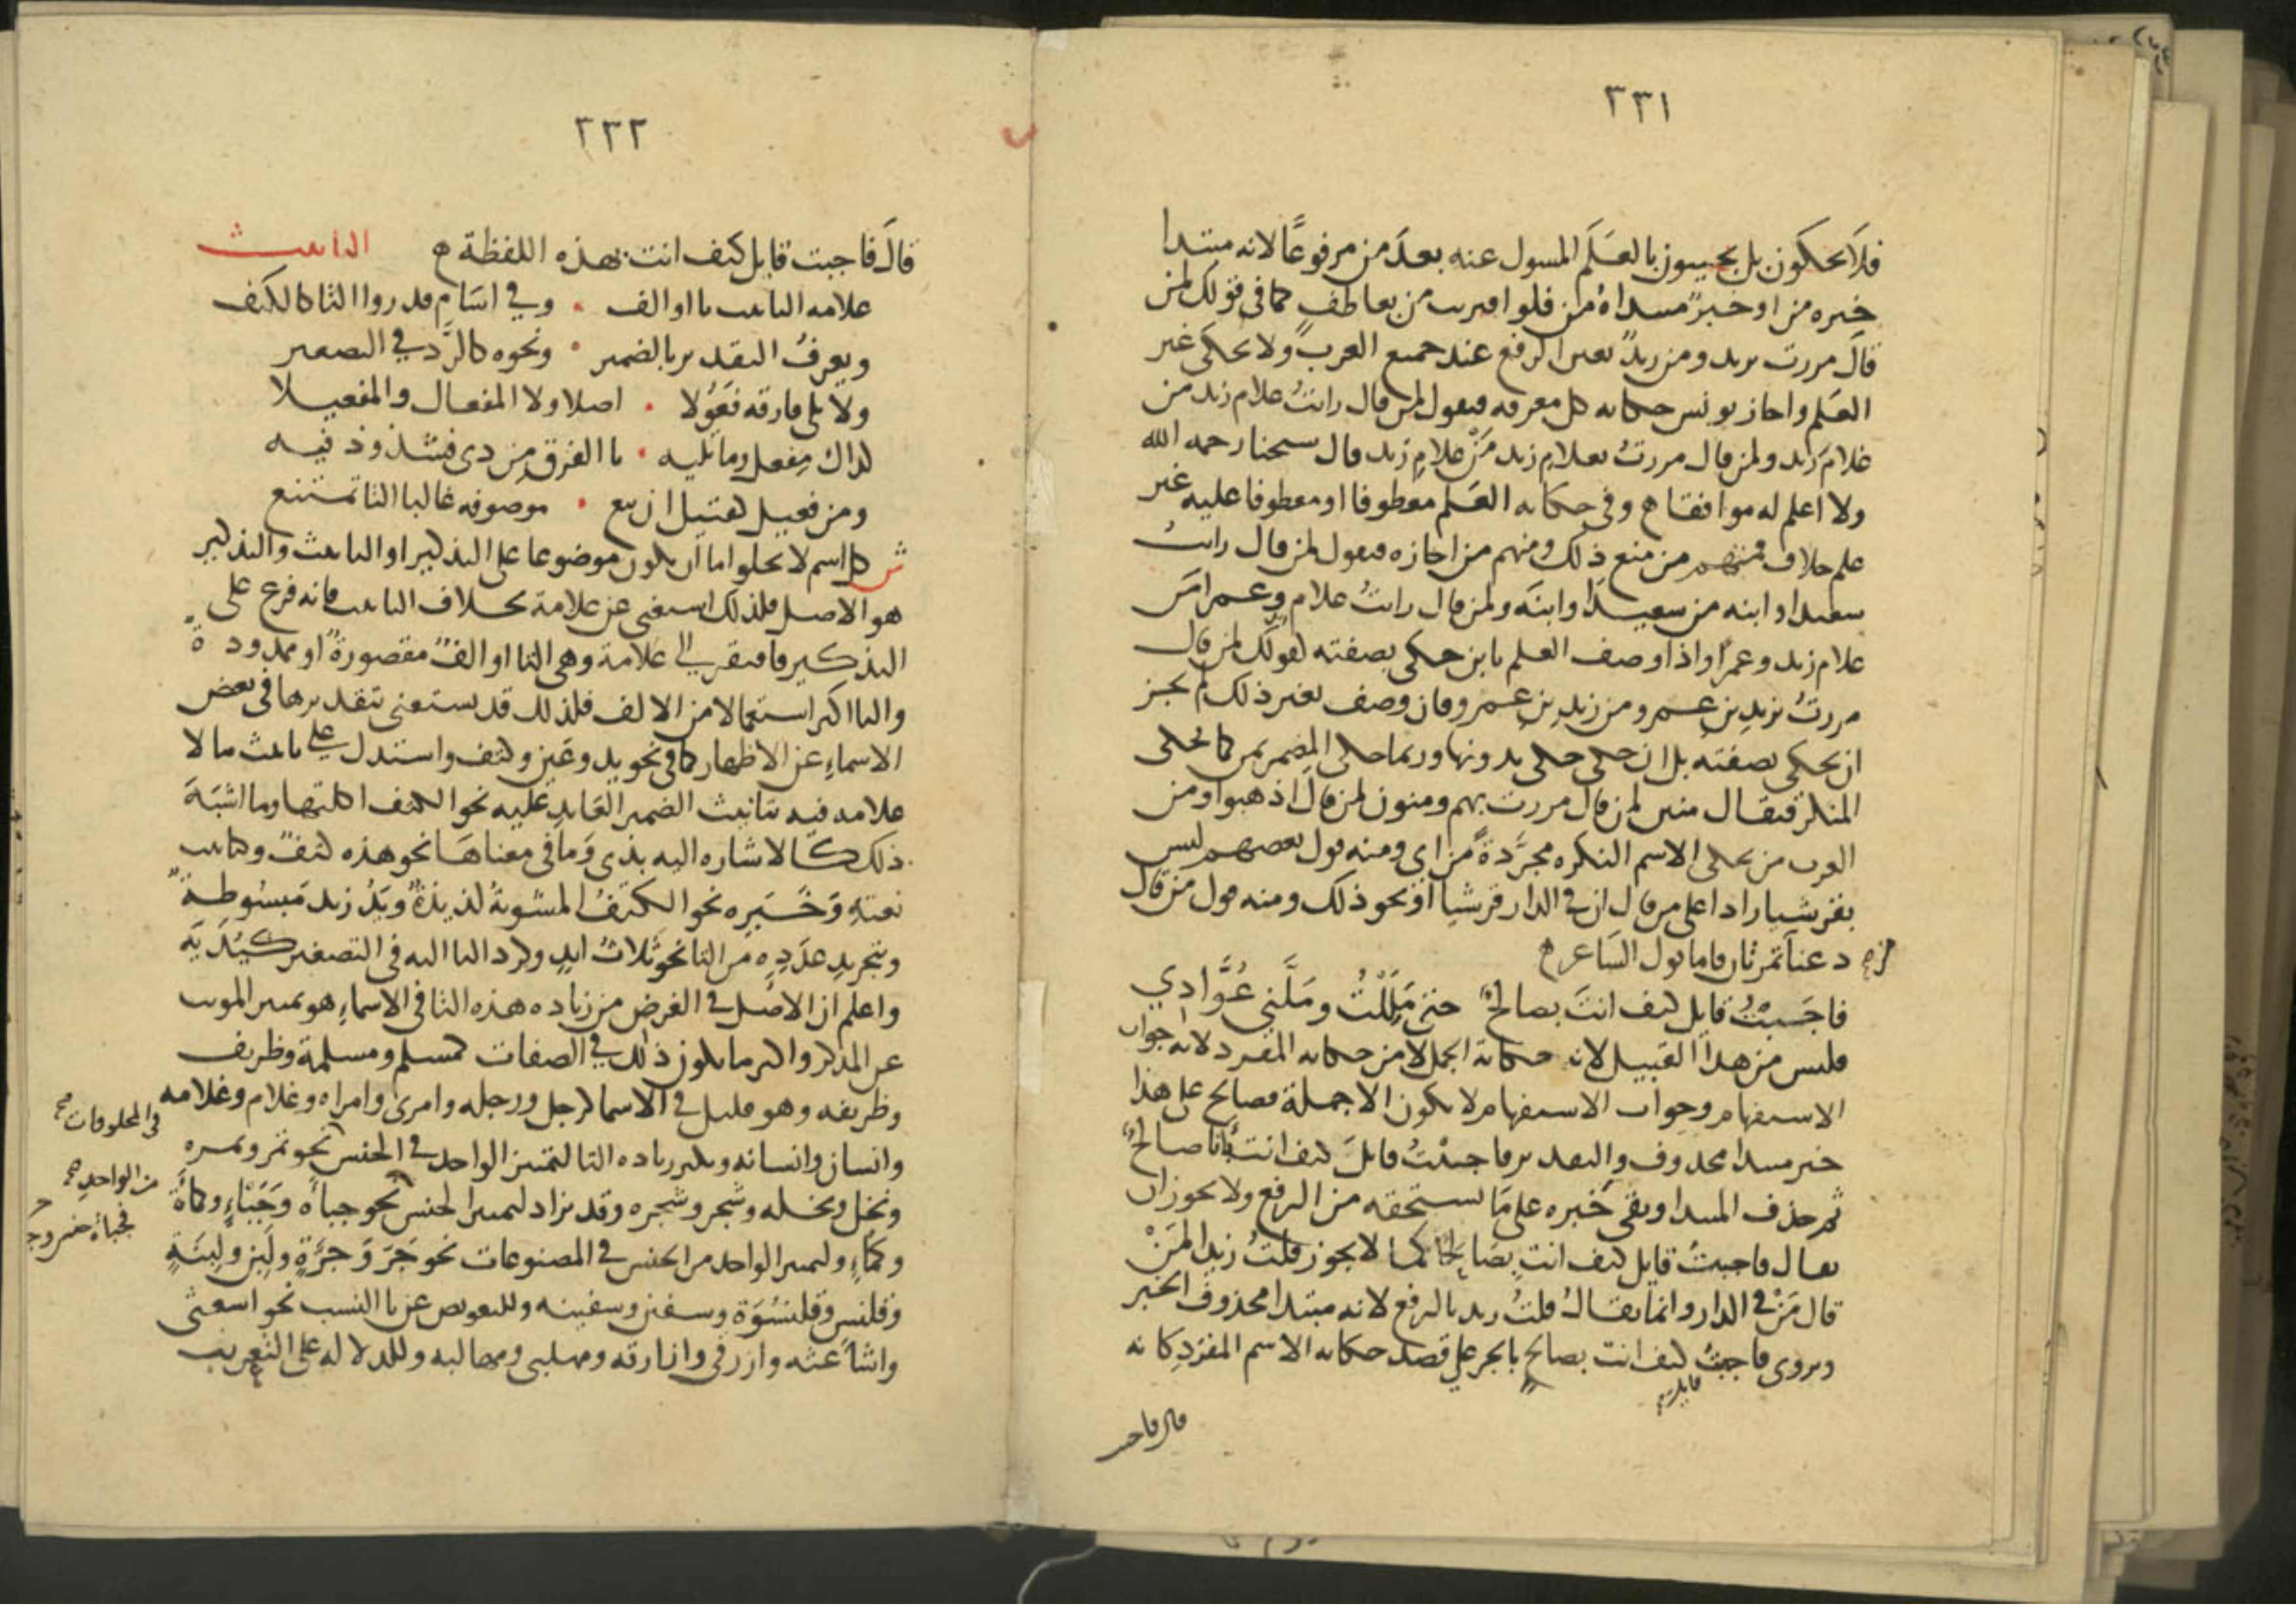 ٢٣١
فلا يحكون بل يجيبون بالعلم المسول عنه بعد من مرفوعا لانه مبتدا
خبره من او خبر مبتداه من فلو اقترنت من بعاطف كما في قولك لمن
قال مررت بزيد ومن زيد تعين الرفع عند جميع العرب ولا يحكى غير
العلم واجاز يونس حكاية كل معرفه فيقول لمن قال رايت غلام زيد من
غلام زيد ولمن قال مررت بغلام زيد من غلام زيد قال شيخنا رحمه الله
ولا اعلم له موافقا وفي حكايه العلم معطوفا او معطوفا عليه غير
علم خلاف فمنهم من منع ذلك ومنهم من اجازه فيقول لمن قال رايت
سعيدا وابنه من سعيدا وابنه ولمن قال رايت غلام وعمرا من
غلام زيد وعمرا واذا وصف العلم بابن حكى بصفته كقولك لمن قال
مررت بزيد بن عمرو من زيد بن عمرو فان وصف بغير ذلك لم يجز
ان يحكى بصفته بل ان حكي حكي بدونها وربما حكي المضمر بمن كما يحكى
المنكر فيقال منين لمن قال مررت بهم ومنون لمن قال اذهبوا ومن
العرب من يحكي الاسم النكره مجردة من اي ومنه قول بعضهم ليس
بقرشيا رادا على من قال ان في الدار قرشيا او نحو ذلك ومنه قول من قال
دعنا من تمرتان فاما قول الشاعر
فاجبت قايل كيف انت بصالح حتى مللت وملني عوادي
فليس من هذا القبيل لانه حكاية الجمل لا من حكايه المفرد لانه جواب
الاستفهام وجواب الاستفهام لا يكون الا جملة فصالح على هذا
خبر مبتدا محذوف والتقدير فاجبت قايل كيف انت بانا صالح
ثم حذف المبتدا وبقي خبره على ما يستحقه من الرفع ولا يجوز ان
يقال فاجبت قايل كيف انت بصالحا كما لا يجوز قلت زيدا لمن
قال من في الدار وانما يقال قلت زيد بالرفع لانه مبتدا محذوف الخبر
ويروى فاجبت كيف انت بصالح بالجر على قصد حكايه الاسم المفرد كانه
قايل
قال فاجبت
٢٣٢
قال فاجبت قايل كيف انت بهذه اللفظة التانيث
علامه التانيث تا او الف وفي اسام قدروا التا كالكتف
ويعرف التقدير بالضمير ونحوه كالرد في التصغير
ولا تلي فارقه فعولا اصلا ولا المفعال والمفعيلا
كذاك مفعل وما تليه تا الفرق من ذي فشذوذ فيه
ومن فعيل كقتيل ان تبع موصوفه غالبا التا تمتنع
ش كل اسم لا يخلو اما ان يكون موضوعا على التذكير او التانيث والتذكير
هو الاصل فلذلك استغنى عن علامة بخلاف التانيث فانه فرع على
التذكير فافتقر الى علامة وهي التا او الف مقصورة او ممدودة
والتا اكثر استعمالا من الالف فلذلك قد يستغنى بتقديرها في بعض
الاسماء عن الاظهار كما في نحو يد وعين وكتف واستدل على تانيث ما لا
علامه فيه بتانيث الضمير العايد عليه نحو الكتف اكلتها وما اشبه
ذلك كالاشاره اليه بذي وما في معناها نحو هذه كتف وكتانيث
نعته وخبره نحو الكتف المشوية لذيذة ويد زيد مبسوطة
وتجريد عدده من التا نحو ثلاث ايد وكرد التا اليه في التصغير كيديه
واعلم ان الاصل في الغرض من زياده هذه التا في الاسماء هو تمييز المونث
عن المذكر واكثر ما يكون ذلك في الصفات كمسلم ومسلمة وظريف
وظريفه وهو قليل في الاسما كرجل ورجله وامرى وامراه وغلام وغلامه
وانسان وانسانه ويكثر زياده التا لتمييز الواحد في الجنس نحو تمر وتمره
في المخلوقات صح
ونخل ونخله وشجر وشجره وقد تزاد لتمييز الجنس نحو جبأة وجبء وكمأة
من الواحد صح
وكمء ولتمييز الواحد من الجنس في المصنوعات نحو جر وجرة ولبن ولبنة
وقلنس وقلنسوة وسفن وسفينه وللتعويض عن يا النسب نحو اشعثي
واشاعثه وازرقي وازارقه ومهلبي ومهالبه وللدلاله على التعريب